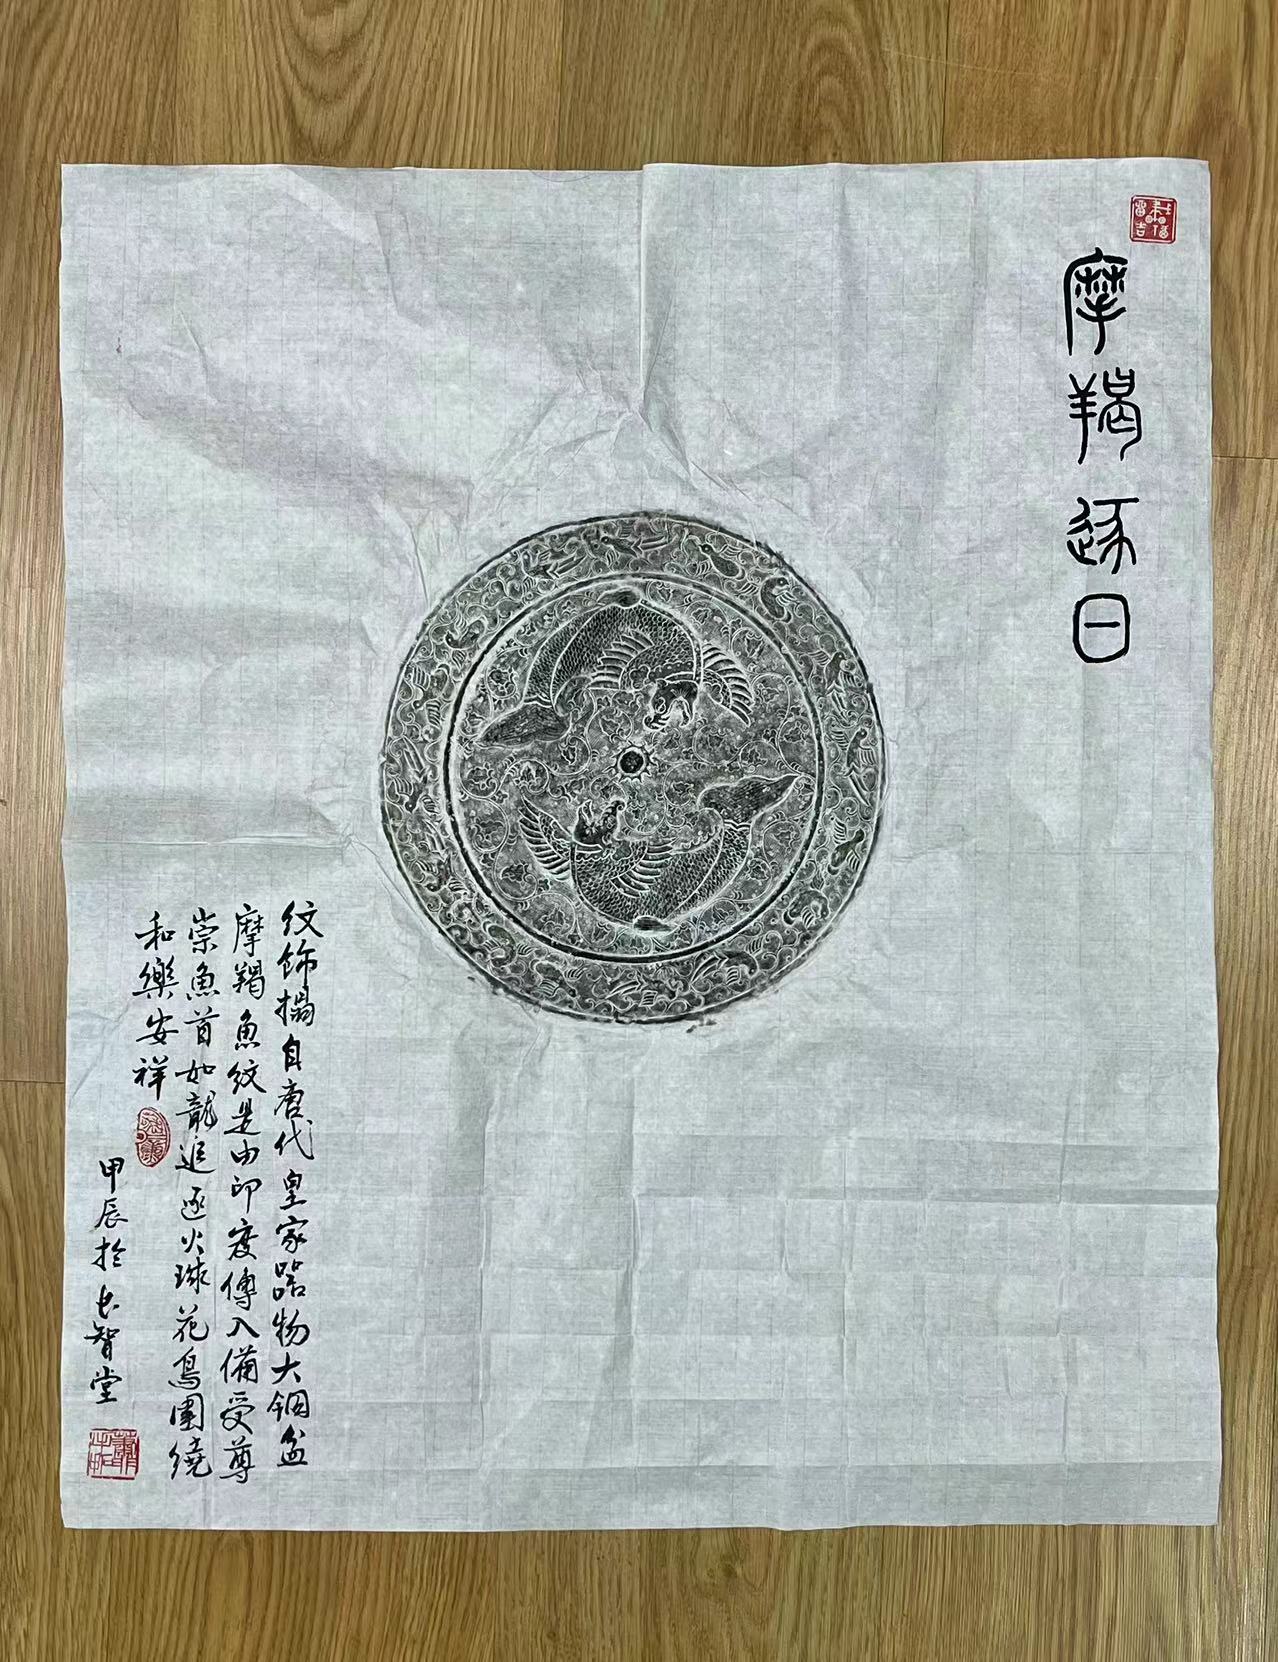 摩羯逐日
纹饰搨自唐代皇家器物大铜盆
摩羯魚紋是由印度傳入備受尊
崇魚首如龍追逐火球花鳥圍繞
和樂安祥
甲辰於 智堂